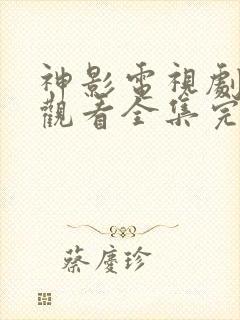 神影電視劇
觀看全集完
蔡慶珍